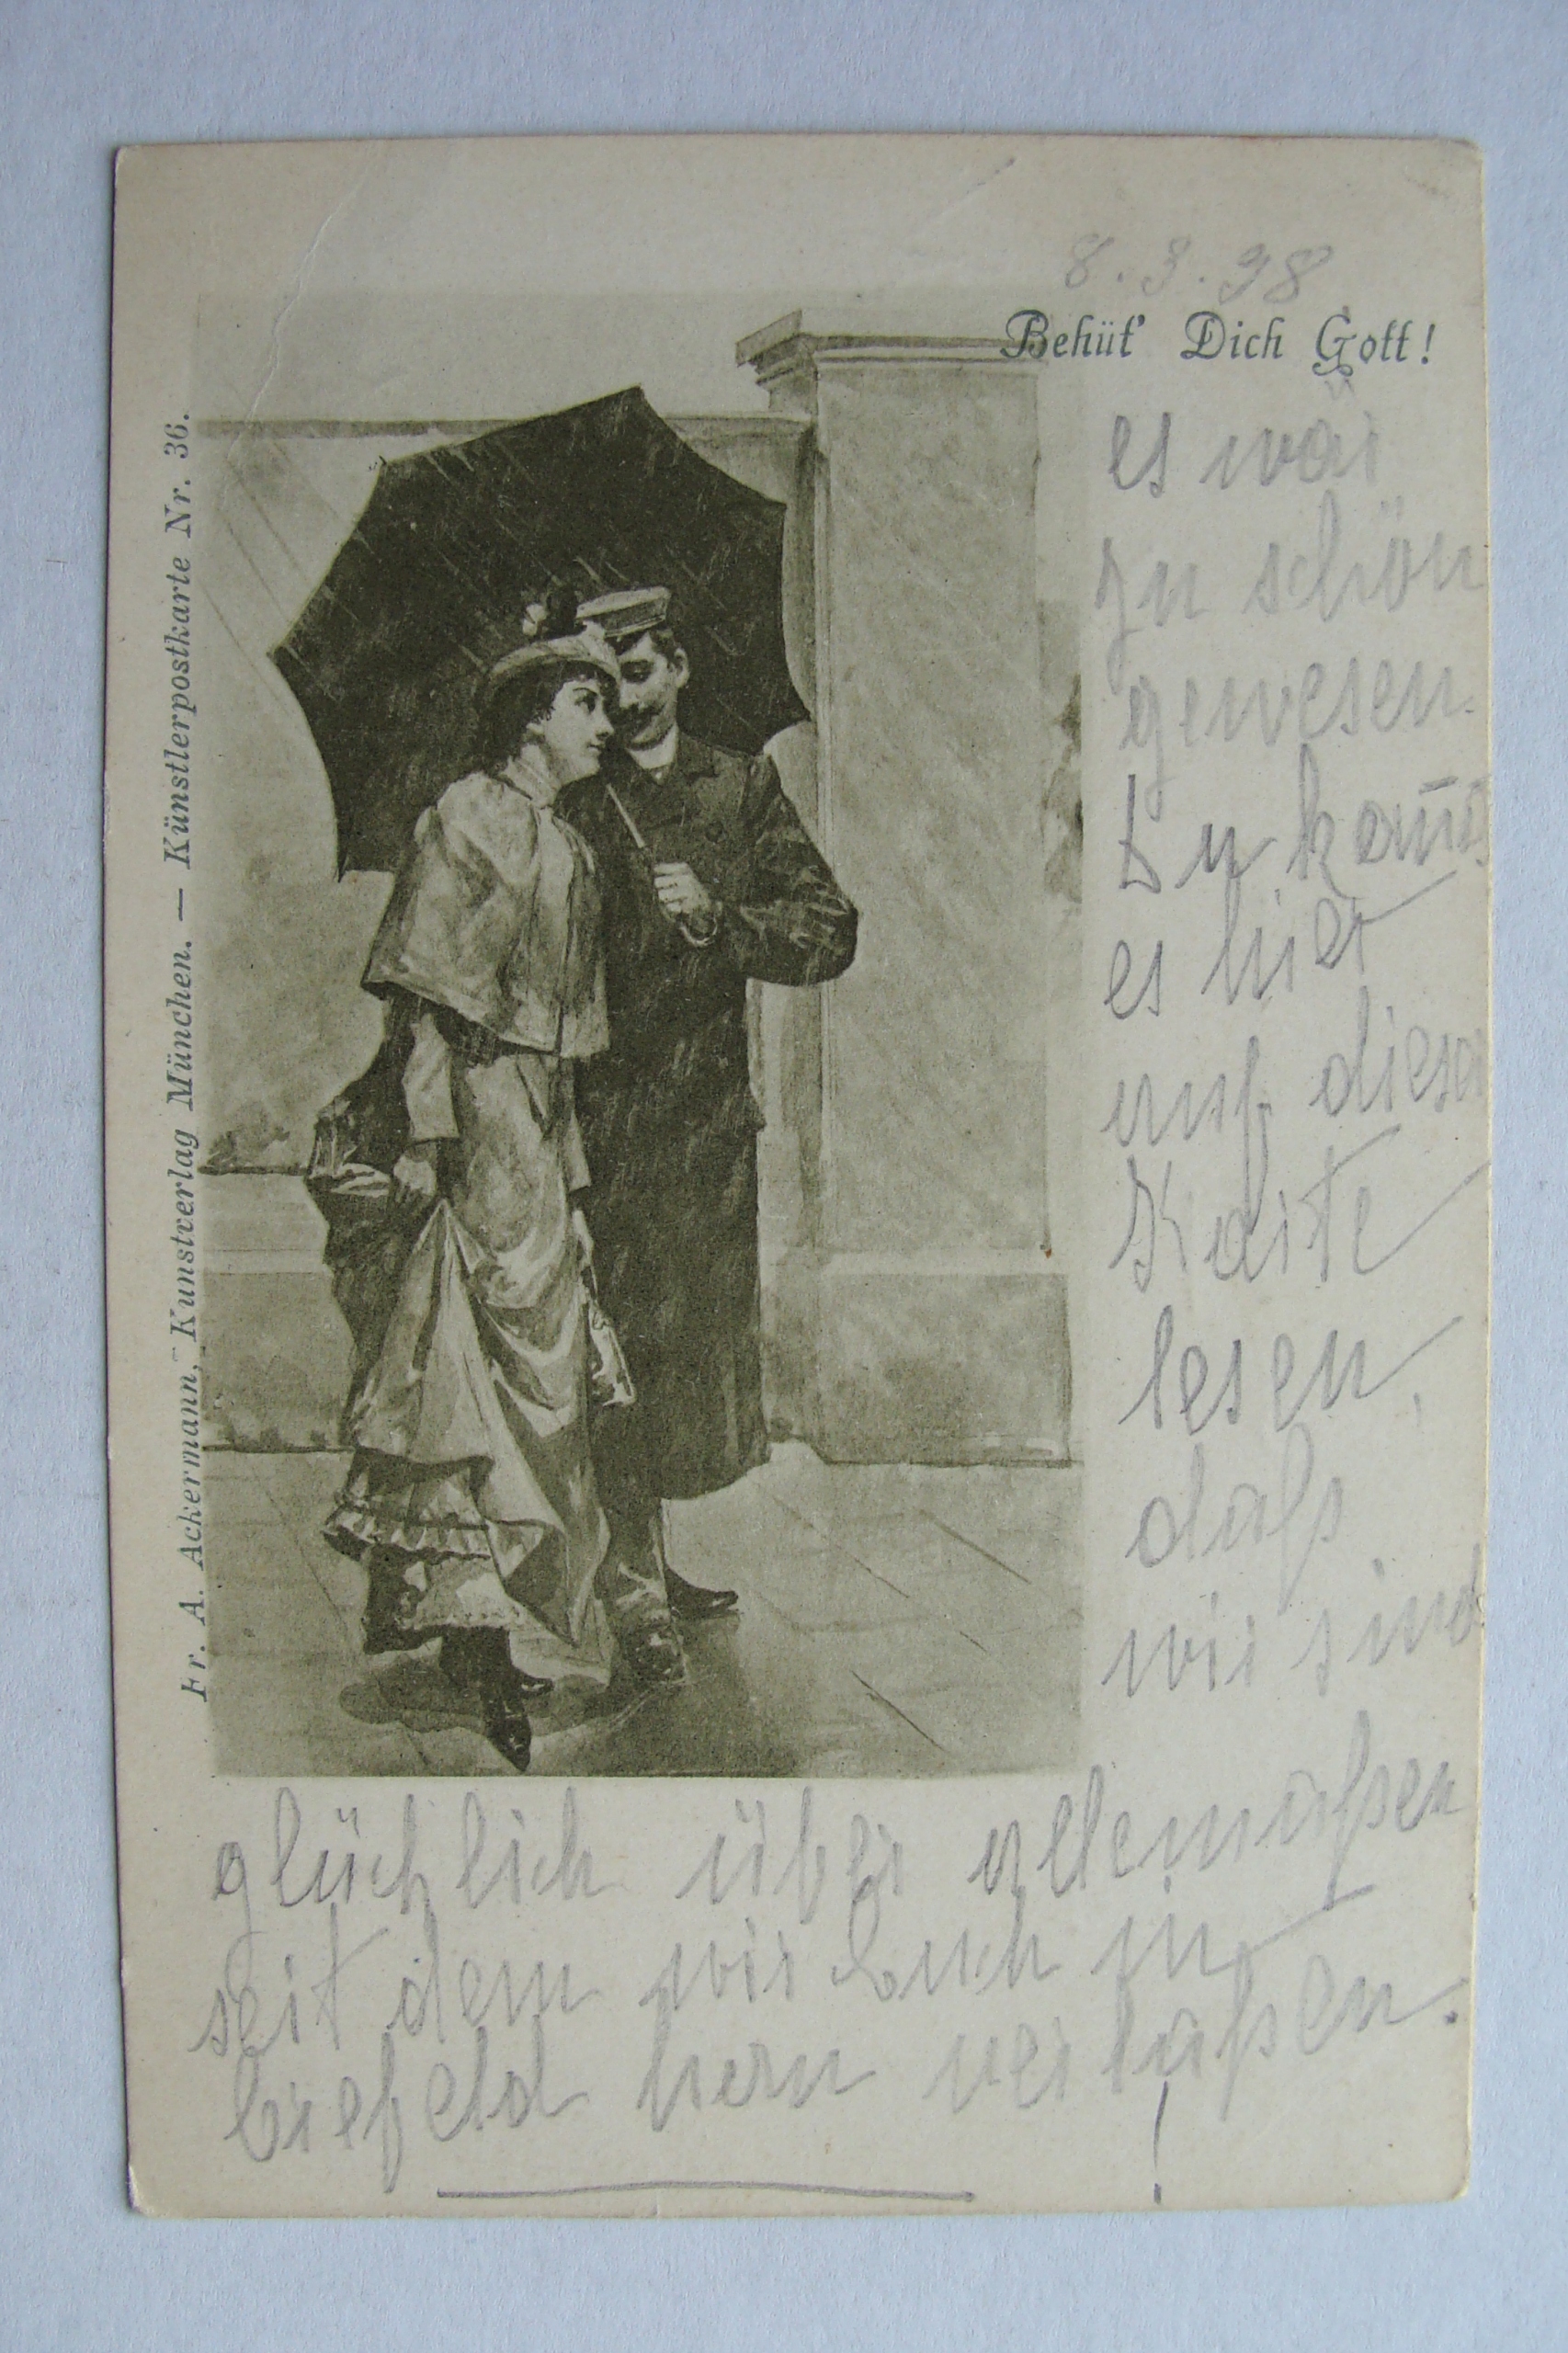 8.3.98
Behüt' Dich Gott!
es wär
zu schön
gewesen.
Du kan̅st
es hier
auf dieser
Karte
lesen,
daß
wir sind
glücklich über allemaßen
seit dem wir Euch in
fern verlaßen.
!
Fr. A. Ackermann, Kunstverlag München. — Künstlerpostkarte Nr. 36.